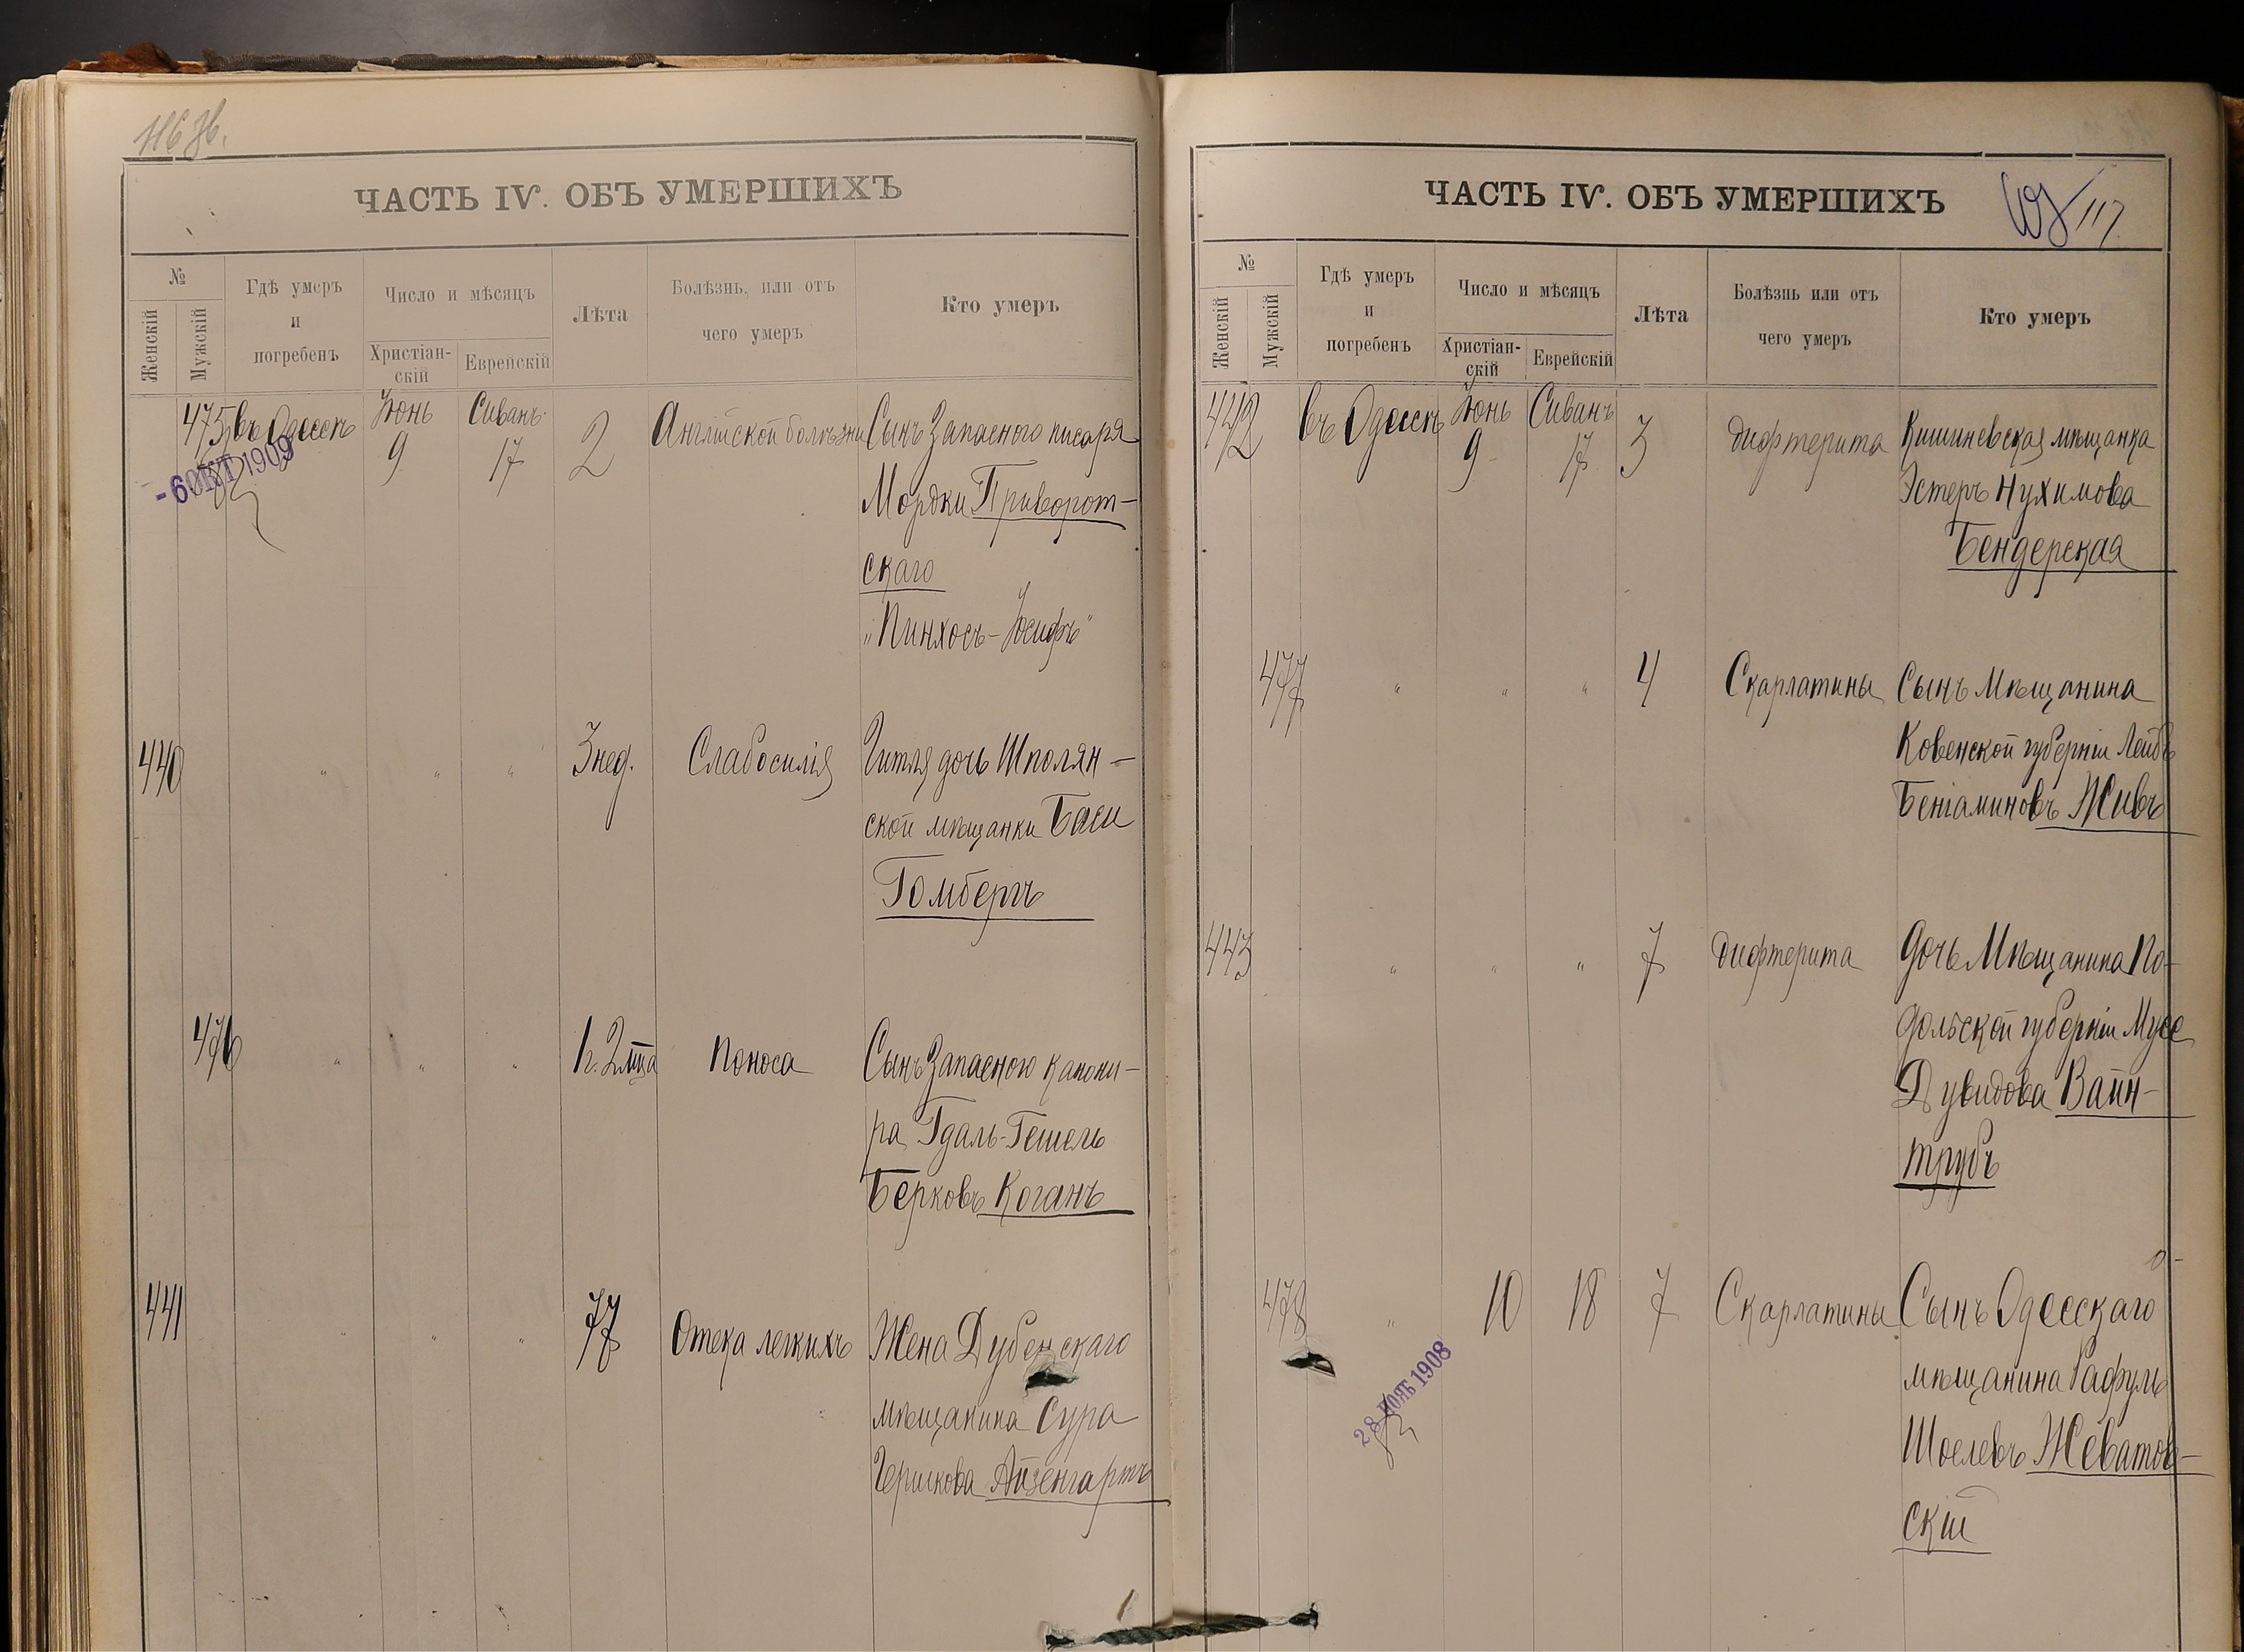 116 об.
ЧАСТЬ IV. ОБЪ УМЕРШИХЪ
№
Женскій
Мужскій
Гдѣ умеръ
и
погребенъ
Число и мѣсяцъ
Христіан-
скій
Еврейскій
Лѣта
Болѣзнь, или отъ
чего умеръ
Кто умеръ
475 въ Одессѣ Іюнь 9 Сиванъ 17 2 Англійской болѣзни Сынъ Запаснаго писаря
- 6 ОКТ 1909
Мордки Приворот-
скаго
„Пинхосъ-Іосифъ"
440 " " " 3 нед. Слабосилія Гитля дочь Шполян-
ской мѣщанки Баси
Гомбергъ
476 " " " 1 г. 2 мца Поноса Сынъ Запаснаго канони-
ра Гдаль-Гешель
Берковъ Коганъ
441 " " " 77 Отека легкихъ Жена Дубенскаго
мѣщанина Сура
Гершкова Айзенгартъ
ЧАСТЬ IV. ОБЪ УМЕРШИХЪ
117
№
Женскій
Мужскій
Гдѣ умеръ
и
погребенъ
Число и мѣсяцъ
Христіан-
скій
Еврейскій
Лѣта
Болѣзнь или отъ
чего умеръ
Кто умеръ
442 въ Одессѣ Іюнь 9 Сиванъ 17 3 дифтерита Кишиневская мѣщанка
Эстеръ Нухимова
Бендерская
477 " " " 4 Скарлатины Сынъ Мѣщанина
Ковенской губерніи Лейбъ
Беніаминовъ Живъ
443 " " " 7 дифтерита Дочь Мѣщанина По-
дольской губерніи Муся
Дувидова Вайн-
трубъ
478 " 10 18 7 Скарлатины Сынъ Одесскаго
28 НОЯБ 1908
мѣщанина Рафуль
Шоелевъ Жеватов-
скій